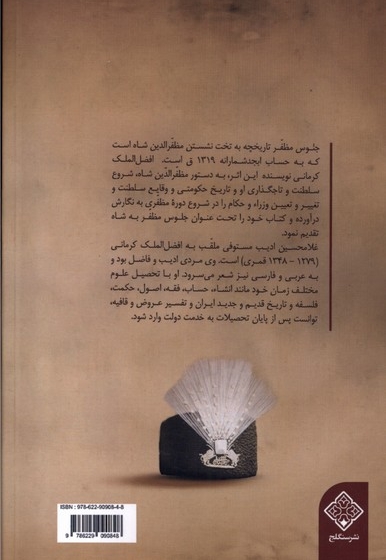 جلوس مظفّر تاریخچه به تخت نشستن مظفّرالدین شاه است
که به حساب ابجدشمارانه ۱۳۱۹ ق است. افضل‌الملک
کرمانی نویسنده این اثر، به دستور مظفّرالدّین شاه، شروع
سلطنت و تاجگذاری او و تاریخ حکومتی و وقایع سلطنت و
تغییر و تعیین وزراء و حکام را در شروع دورۀ مظفری به نگارش
درآورده و کتاب خود را تحت عنوان جلوس مظفر به شاه
تقدیم نمود.
غلامحسین ادیب مستوفی ملقب به افضل‌الملک کرمانی
(۱۲۷۹ - ۱۳۴۸ قمری) است. وی مردی ادیب و فاضل بود و
به عربی و فارسی نیز شعر می‌سرود. او با تحصیل علوم
مختلف زمان خود مانند انشاء، حساب، فقه، اصول، حکمت،
فلسفه و تاریخ قدیم و جدید ایران و تفسیر عروض و قافیه،
توانست پس از پایان تحصیلات به خدمت دولت وارد شود.
ISBN : 978-622-90908-4-8
9 786229 090848
نشر سنگلج